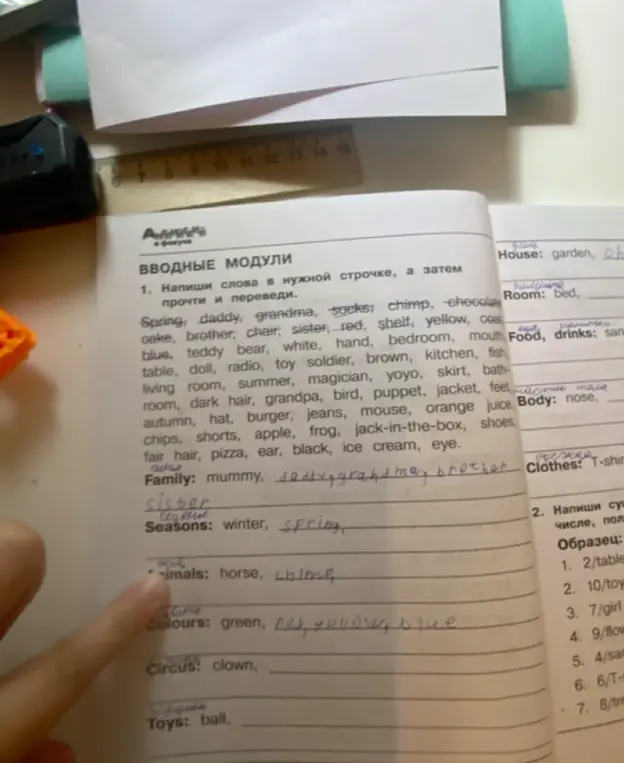 в фокусе
ВВОДНЫЕ МОДУЛИ
1. Напиши слова в нужной строчке, а затем
прочти и переведи.
Spring, daddy, grandma, socks, chimp, chocolate
cake, brother, chair, sister, red, shelf, yellow, coat,
blue, teddy bear, white, hand, bedroom, mouth,
table, doll, radio, toy soldier, brown, kitchen, fish,
living room, summer, magician, yoyo, skirt, bath-
room, dark hair, grandpa, bird, puppet, jacket, feet,
autumn, hat, burger, jeans, mouse, orange juice,
chips, shorts, apple, frog, jack-in-the-box, shoes,
fair hair, pizza, ear, black, ice cream, eye.
Family: mummy, dady, grandma, brother
sister
Seasons: winter, spring,
Animals: horse, chimp,
Colours: green, red, yellow, blue
Circus: clown,
Toys: ball,
House: garden,
Room: bed,
Food, drinks: san
Body: nose,
Clothes: T-shir
2. Напиши су
числе, пол
Образец:
1. 2/table
2. 10/toy
3. 7/girl
4. 9/flow
5. 4/sa
6. 6/T-
7. 8/tre